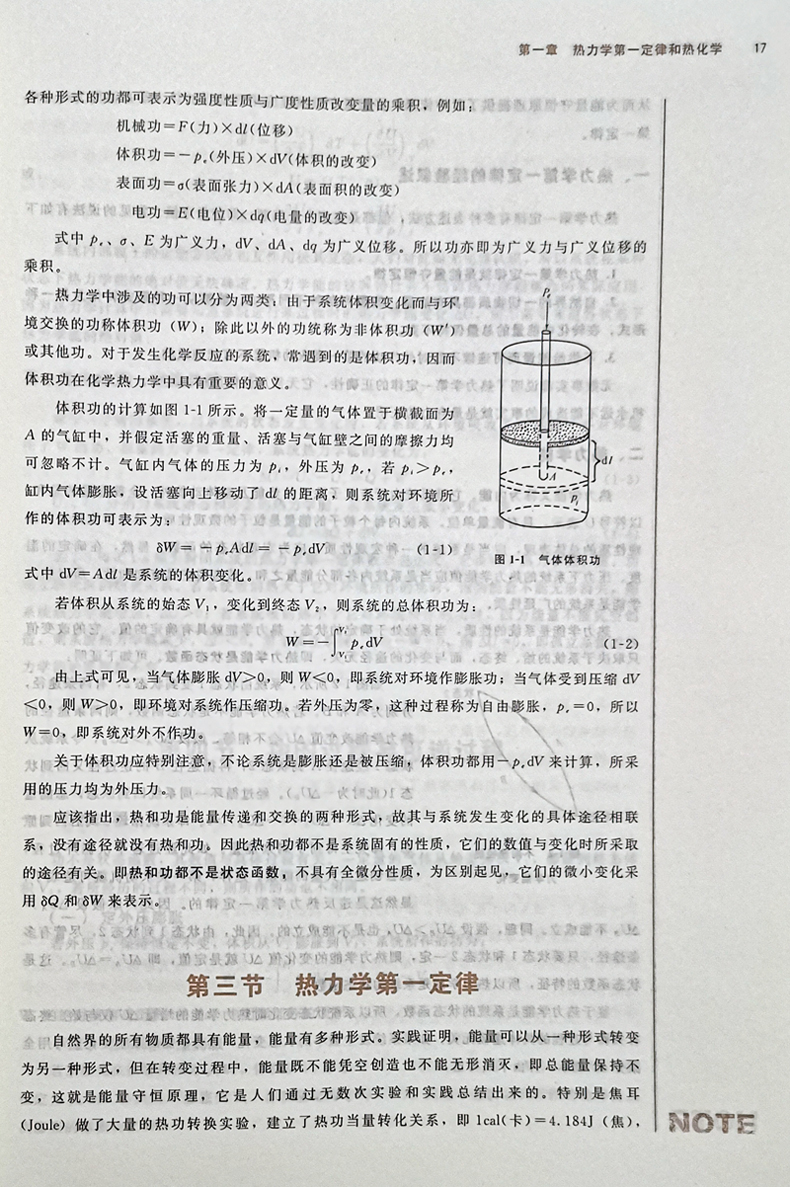 第一章 热力学第一定律和热化学 17
各种形式的功都可表示为强度性质与广度性质改变量的乘积，例如：
机械功＝F(力)×dl(位移)
体积功＝－pₑ(外压)×dV(体积的改变)
表面功＝σ(表面张力)×dA(表面积的改变)
电功＝E(电位)×dq(电量的改变)
式中 pₑ、σ、E 为广义力，dV、dA、dq 为广义位移。所以功亦即为广义力与广义位移的
乘积。
热力学中涉及的功可以分为两类：由于系统体积变化而与环
境交换的功称体积功（W）；除此以外的功统称为非体积功（W′）
或其他功。对于发生化学反应的系统，常遇到的是体积功，因而
体积功在化学热力学中具有重要的意义。
体积功的计算如图 1-1 所示。将一定量的气体置于横截面为
A 的气缸中，并假定活塞的重量、活塞与气缸壁之间的摩擦力均
可忽略不计。气缸内气体的压力为 pᵢ，外压为 pₑ，若 pᵢ＞pₑ，
缸内气体膨胀，设活塞向上移动了 dl 的距离，则系统对环境所
作的体积功可表示为：
δW＝－pₑAdl＝－pₑdV (1-1)
式中 dV＝Adl 是系统的体积变化。
pₑ
dl
A
pᵢ
图 1-1 气体体积功
若体积从系统的始态 V₁，变化到终态 V₂，则系统的总体积功为：
W＝－∫pₑdV (1-2)
由上式可见，当气体膨胀 dV＞0，则 W＜0，即系统对环境作膨胀功；当气体受到压缩 dV
＜0，则 W＞0，即环境对系统作压缩功。若外压为零，这种过程称为自由膨胀，pₑ＝0，所以
W＝0，即系统对外不作功。
关于体积功应特别注意，不论系统是膨胀还是被压缩，体积功都用－pₑdV 来计算，所采
用的压力均为外压力。
应该指出，热和功是能量传递和交换的两种形式，故其与系统发生变化的具体途径相联
系，没有途径就没有热和功。因此热和功都不是系统固有的性质，它们的数值与变化时所采取
的途径有关。即热和功都不是状态函数，不具有全微分性质，为区别起见，它们的微小变化采
用 δQ 和 δW 来表示。
第三节 热力学第一定律
自然界的所有物质都具有能量，能量有多种形式。实践证明，能量可以从一种形式转变
为另一种形式，但在转变过程中，能量既不能凭空创造也不能无形消灭，即总能量保持不
变，这就是能量守恒原理，它是人们通过无数次实验和实践总结出来的。特别是焦耳
(Joule) 做了大量的热功转换实验，建立了热功当量转化关系，即 1cal(卡)＝4.184J（焦），
NOTE